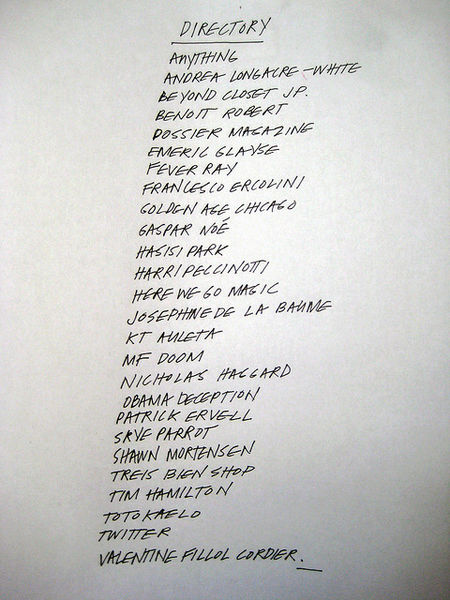 DIRECTORY
ANYTHING
ANDREA LONGACRE-WHITE
BEYOND CLOSET JP.
BENOIT ROBERT
DOSSIER MAGAZINE
EMERIC GLAYSE
FEVER RAY
FRANCESCO ERCOLINI
GOLDEN AGE CHICAGO
GASPAR NOÉ
HASISI PARK
HARRI PECCINOTTI
HERE WE GO MAGIC
JOSEPHINE DE LA BAUME
KT AULETA
MF DOOM
NICHOLAS HAGGARD
OBAMA DECEPTION
PATRICK ERVELL
SKYE PARROT
SHAWN MORTENSEN
TREIS BIEN SHOP
TIM HAMILTON
TOTOKAELO
TWITTER
VALENTINE FILLOL CORDIER.